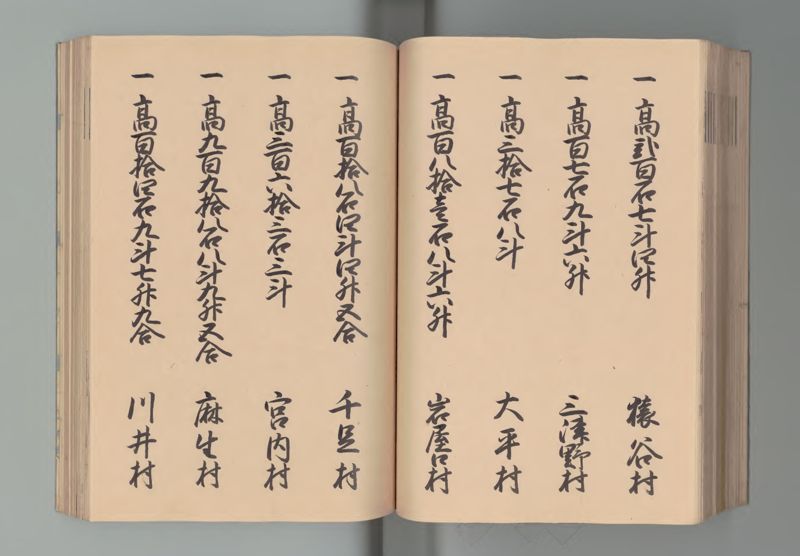 一 高弐百石七斗四升 猿谷村
一 高百七石九斗六升 三津野村
一 高三拾七石八斗 大平村
一 高百八拾壱石八斗六升 岩屋口村
一 高百拾八石四斗四升五合 千足村
一 高三百六拾三石三斗 宮内村
一 高九百九拾八石八斗九升五合 麻生村
一 高百拾四石九斗七升九合 川井村